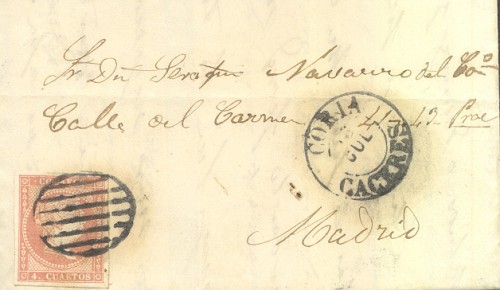 Sr. Dn Serafin Navarro del Cº
Calle del Carmen 41-43 Pral
CORIA
JUL
CACERES
Madrid
4. CUARTOS